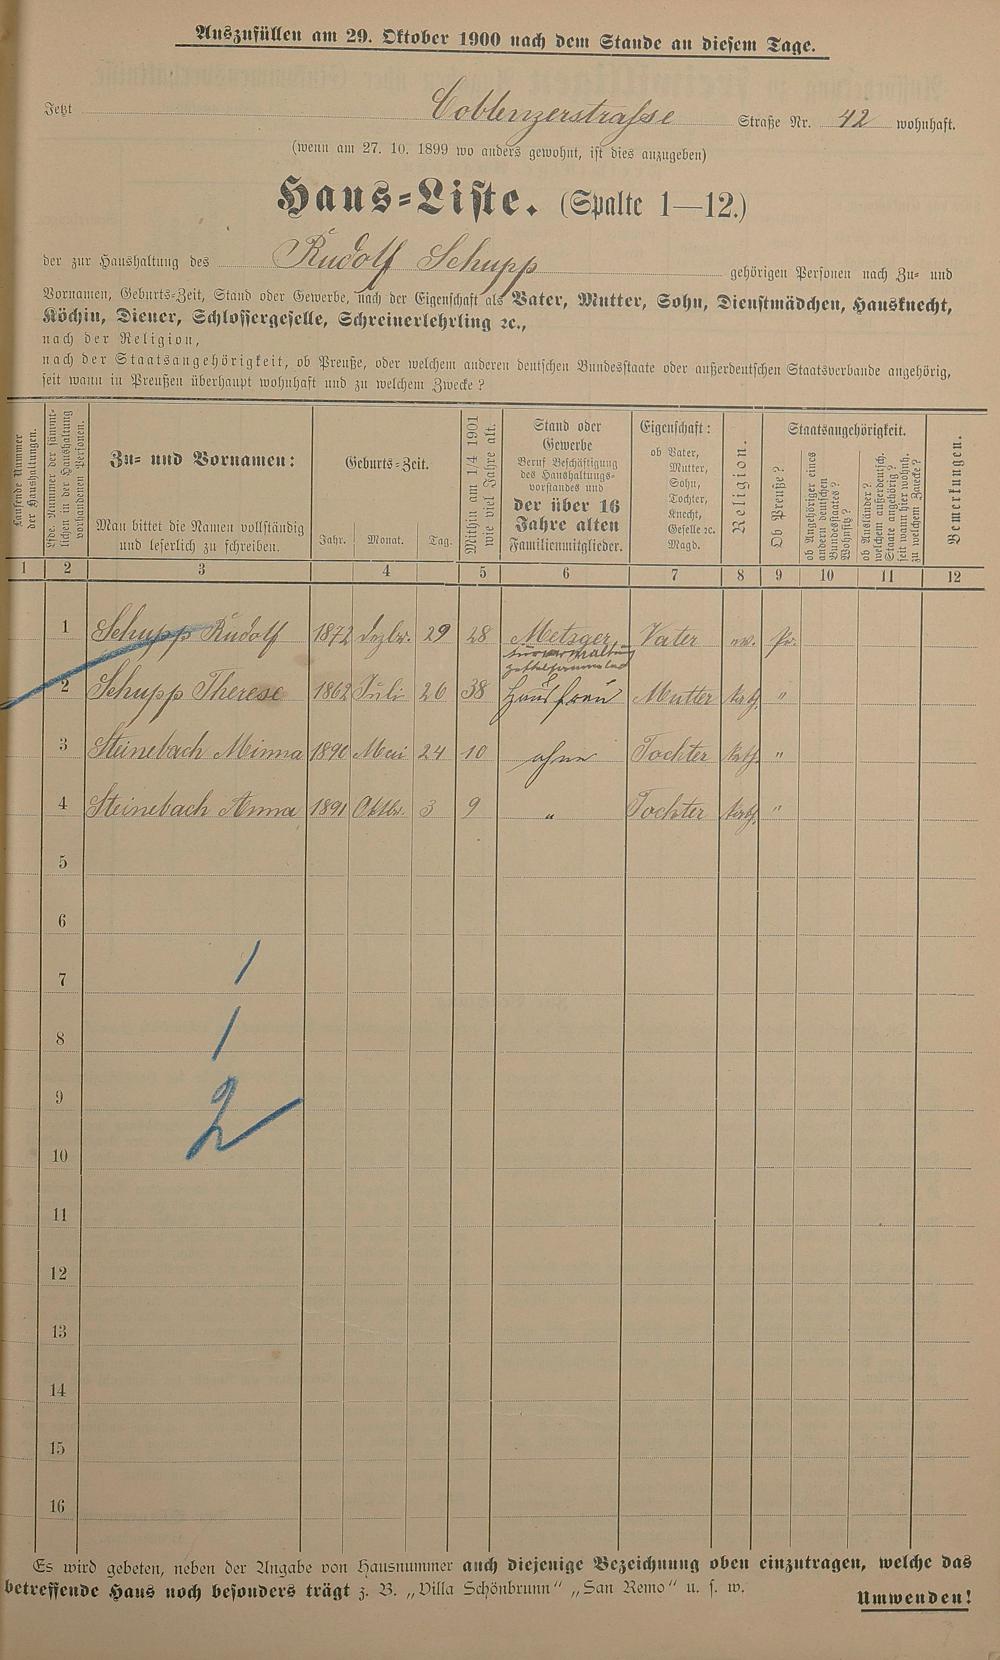 Auszufüllen am 29. Oktober 1900 nach dem Stande an diesem Tage.
Jetzt Coblenzerstrasse Straße Nr. 42 wohnhaft.
(wenn am 27. 10. 1899 wo anders gewohnt, ist dies anzugeben)
Haus-Liste. (Spalte 1—12.)
der zur Haushaltung des Rudolf Schupp gehörigen Personen nach Zu- und
Vornamen, Geburts-Zeit, Stand oder Gewerbe, nach der Eigenschaft als Vater, Mutter, Sohn, Dienstmädchen, Hausknecht,
Köchin, Diener, Schlossergeselle, Schreinerlehrling ꝛc.,
nach der Religion,
nach der Staatsangehörigkeit, ob Preuße, oder welchem anderen deutschen Bundesstaate oder außerdeutschen Staatsverbande angehörig,
seit wann in Preußen überhaupt wohnhaft und zu welchem Zwecke?
Laufende Nummer
der Haushaltungen.
Lfde. Nummer der sämmt-
lichen in der Haushaltung
vorhandenen Personen.
Zu- und Vornamen:
Man bittet die Namen vollständig
und leserlich zu schreiben.
Geburts-Zeit.
Jahr. Monat. Tag.
Mithin am 1/4 1901
wie viel Jahre alt.
Stand oder
Gewerbe
Beruf Beschäftigung
des Haushaltungs-
vorstandes und
der über 16
Jahre alten
Familienmitglieder.
Eigenschaft:
ob Vater,
Mutter,
Sohn,
Tochter,
Knecht,
Geselle ꝛc.
Magd.
Religion.
Staatsangehörigkeit.
Ob Preuße?
ob Angehöriger eines
andern deutschen
Bundesstaates?
Wohnsitz?
ob Ausländer?
welchem außerdeutsch.
Staate angehörig?
seit wann hier wohnh.
zu welchem Zwecke?
Bemerkungen.
1 2 3 4 5 6 7 8 9 10 11 12
1 Schupp Rudolf 1872 Dezbr. 29 28 Metzger Vater ev. Pr.
2 Schupp Therese 1862 Juli 26 38 Hausfrau Mutter Kath. "
3 Steinebach Minna 1890 Mai 24 10 ohne Tochter Kath. "
4 Steinebach Anna 1891 Oktbr. 3 9 " Tochter Kath. "
5
6
7
8
9
10
11
12
13
14
15
16
1
1
2
Es wird gebeten, neben der Angabe von Hausnummer auch diejenige Bezeichnung oben einzutragen, welche das
betreffende Haus noch besonders trägt z. B. „Villa Schönbrunn" „San Remo" u. s. w.
Umwenden!